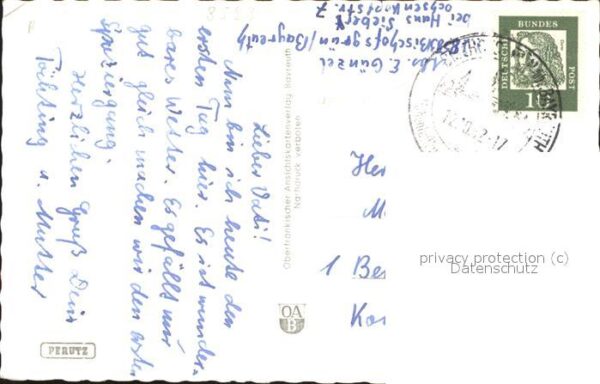 Lieber Vati!
Nun bin ich heute den
ersten Tag hier. Es ist wunder-
bares Wetter. Es gefällt mir
gut gleich machen wir den ersten
Spaziergang.
Herzlichen Gruß Dein
u. Mutter
Abs. E. Günzel
Bischofsgrün/Bayreuth
bei Hans Siebert
Ochsenkopfstr. 7
Oberfränkischer Ansichtskartenverlag Bayreuth
Nachdruck verboten
OA
B
PERUTZ
DEUTSCHE
BUNDES
POST
10
Her
M
1 Ber
Kon
privacy protection (c)
Datenschutz